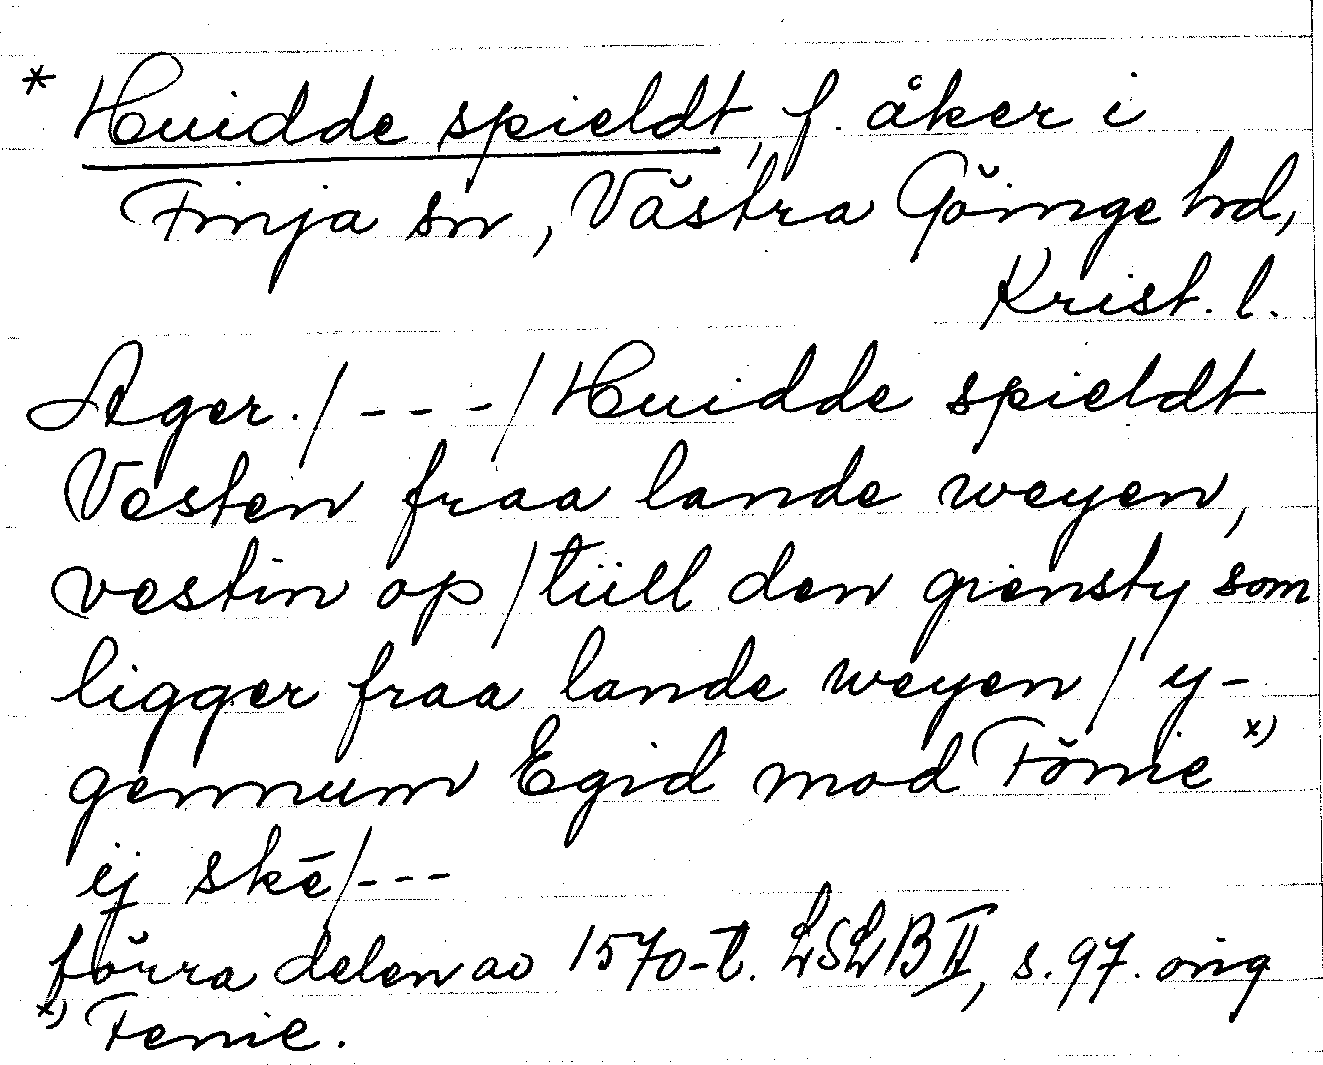 * Huidde spieldt, f. åker i
Finja sn, Västra Göinge hd,
Krist. l.
Ager./ - - - / Huidde spieldt
Vesten fraa lande weyen,
vestin op / tiill den giensty som
ligger fraa lande weyen / y-
gennum Egid mod Fönie x)
ij skē/---
förra delen av 1570-t. LSLB II, s. 97. orig
x) Fenie.